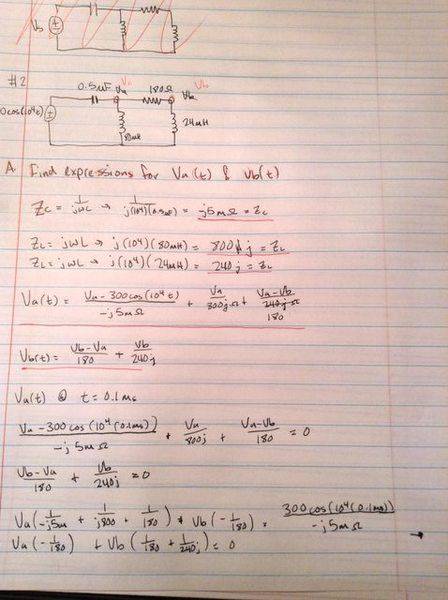 Vs
#2
0.5uF Va 180Ω Vb
Va Vba
0cos(10⁴t) 80mH 24mH
A. Find expressions for Va(t) & Vb(t)
Zc = 1/jωC → 1/j(10⁴)(0.5uF) = -j5mΩ = Zc
ZL = jωL → j(10⁴)(80mH) = 800j = ZL
ZL = jωL → j(10⁴)(24mH) = 240j = ZL
Va(t) = (Va-300cos(10⁴t))/(-j5mΩ) + Va/(800jΩ) + (Va-Vb)/180
Vb(t) = (Vb-Va)/180 + Vb/240j
Va(t) @ t = 0.1ms
(Va-300cos(10⁴(0.1ms)))/(-j5mΩ) + Va/800j + (Va-Vb)/180 = 0
(Vb-Va)/180 + Vb/240j = 0
Va(1/-j5m + 1/j800 + 1/180) + Vb(-1/180) = 300cos(10⁴(0.1ms))/(-j5mΩ)
Va(-1/180) + Vb(1/180 + 1/240j) = 0